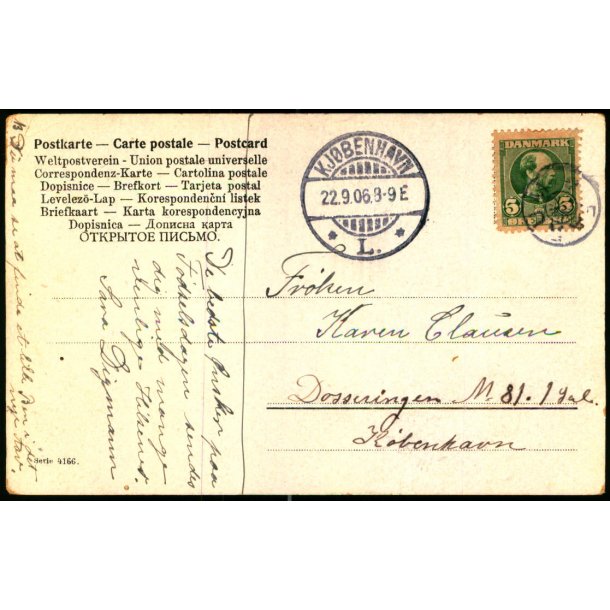 Postkarte — Carte postale — Postcard
Weltpostverein - Union postale universelle
Correspondenz-Karte — Cartolina postale
Dopisnice — Brefkort — Tarjeta postal
Levelező-Lap — Korespondenční listek
Briefkaart — Karta korespondencyjna
Dopisnica — Дописна карта
ОТКРЫТОЕ ПИСЬМО.
KJØBENHAVN
22.9.06.8-9 E
* L. *
DANMARK
5 5
Frøken
Karen Clausen
Dosseringen № 81. 1 Sal.
København
De bedste Ønsker paa
Fødselsdagen sendes
dig med mange
venlige Hilsner.
Sara Digmann
Du maa se at finde et lille
Serie 4166.